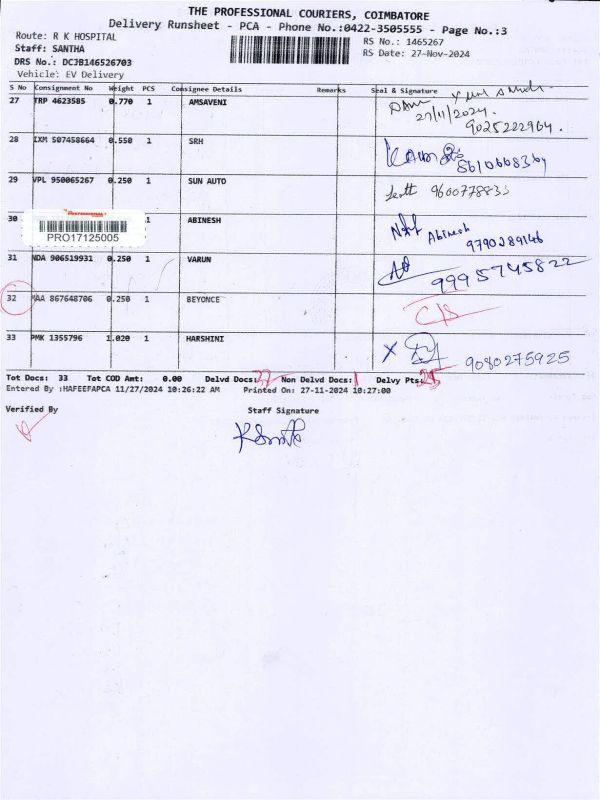 THE PROFESSIONAL COURIERS, COIMBATORE
Delivery Runsheet - PCA - Phone No.:0422-3505555 - Page No.:3
Route: R K HOSPITAL
Staff: SANTHA
DRS No.: DCJB146526703
Vehicle: EV Delivery
RS No.: 1465267
RS Date: 27-Nov-2024
S No Consignment No Weight PCS Consignee Details Remarks Seal & Signature
27 TRP 4623585 0.770 1 AMSAVENI
27/11/2024.
9025222964.
28 IXM 507458664 0.550 1 SRH
8610668369
29 VPL 950065267 0.250 1 SUN AUTO 9600778833
30 1 ABINESH
PRO17125005
Abinesh
9790289146
31 NDA 906519931 0.250 1 VARUN 9995745822
32 MAA 867648706 0.250 1 BEYONCE
C/S
33 PMK 1355796 1.020 1 HARSHINI
X 9080275925
Tot Docs: 33 Tot COD Amt: 0.00 Delvd Docs: Non Delvd Docs: 1 Delvy Pts:
Entered By :HAFEEFAPCA 11/27/2024 10:26:22 AM Printed On: 27-11-2024 10:27:00
Verified By Staff Signature